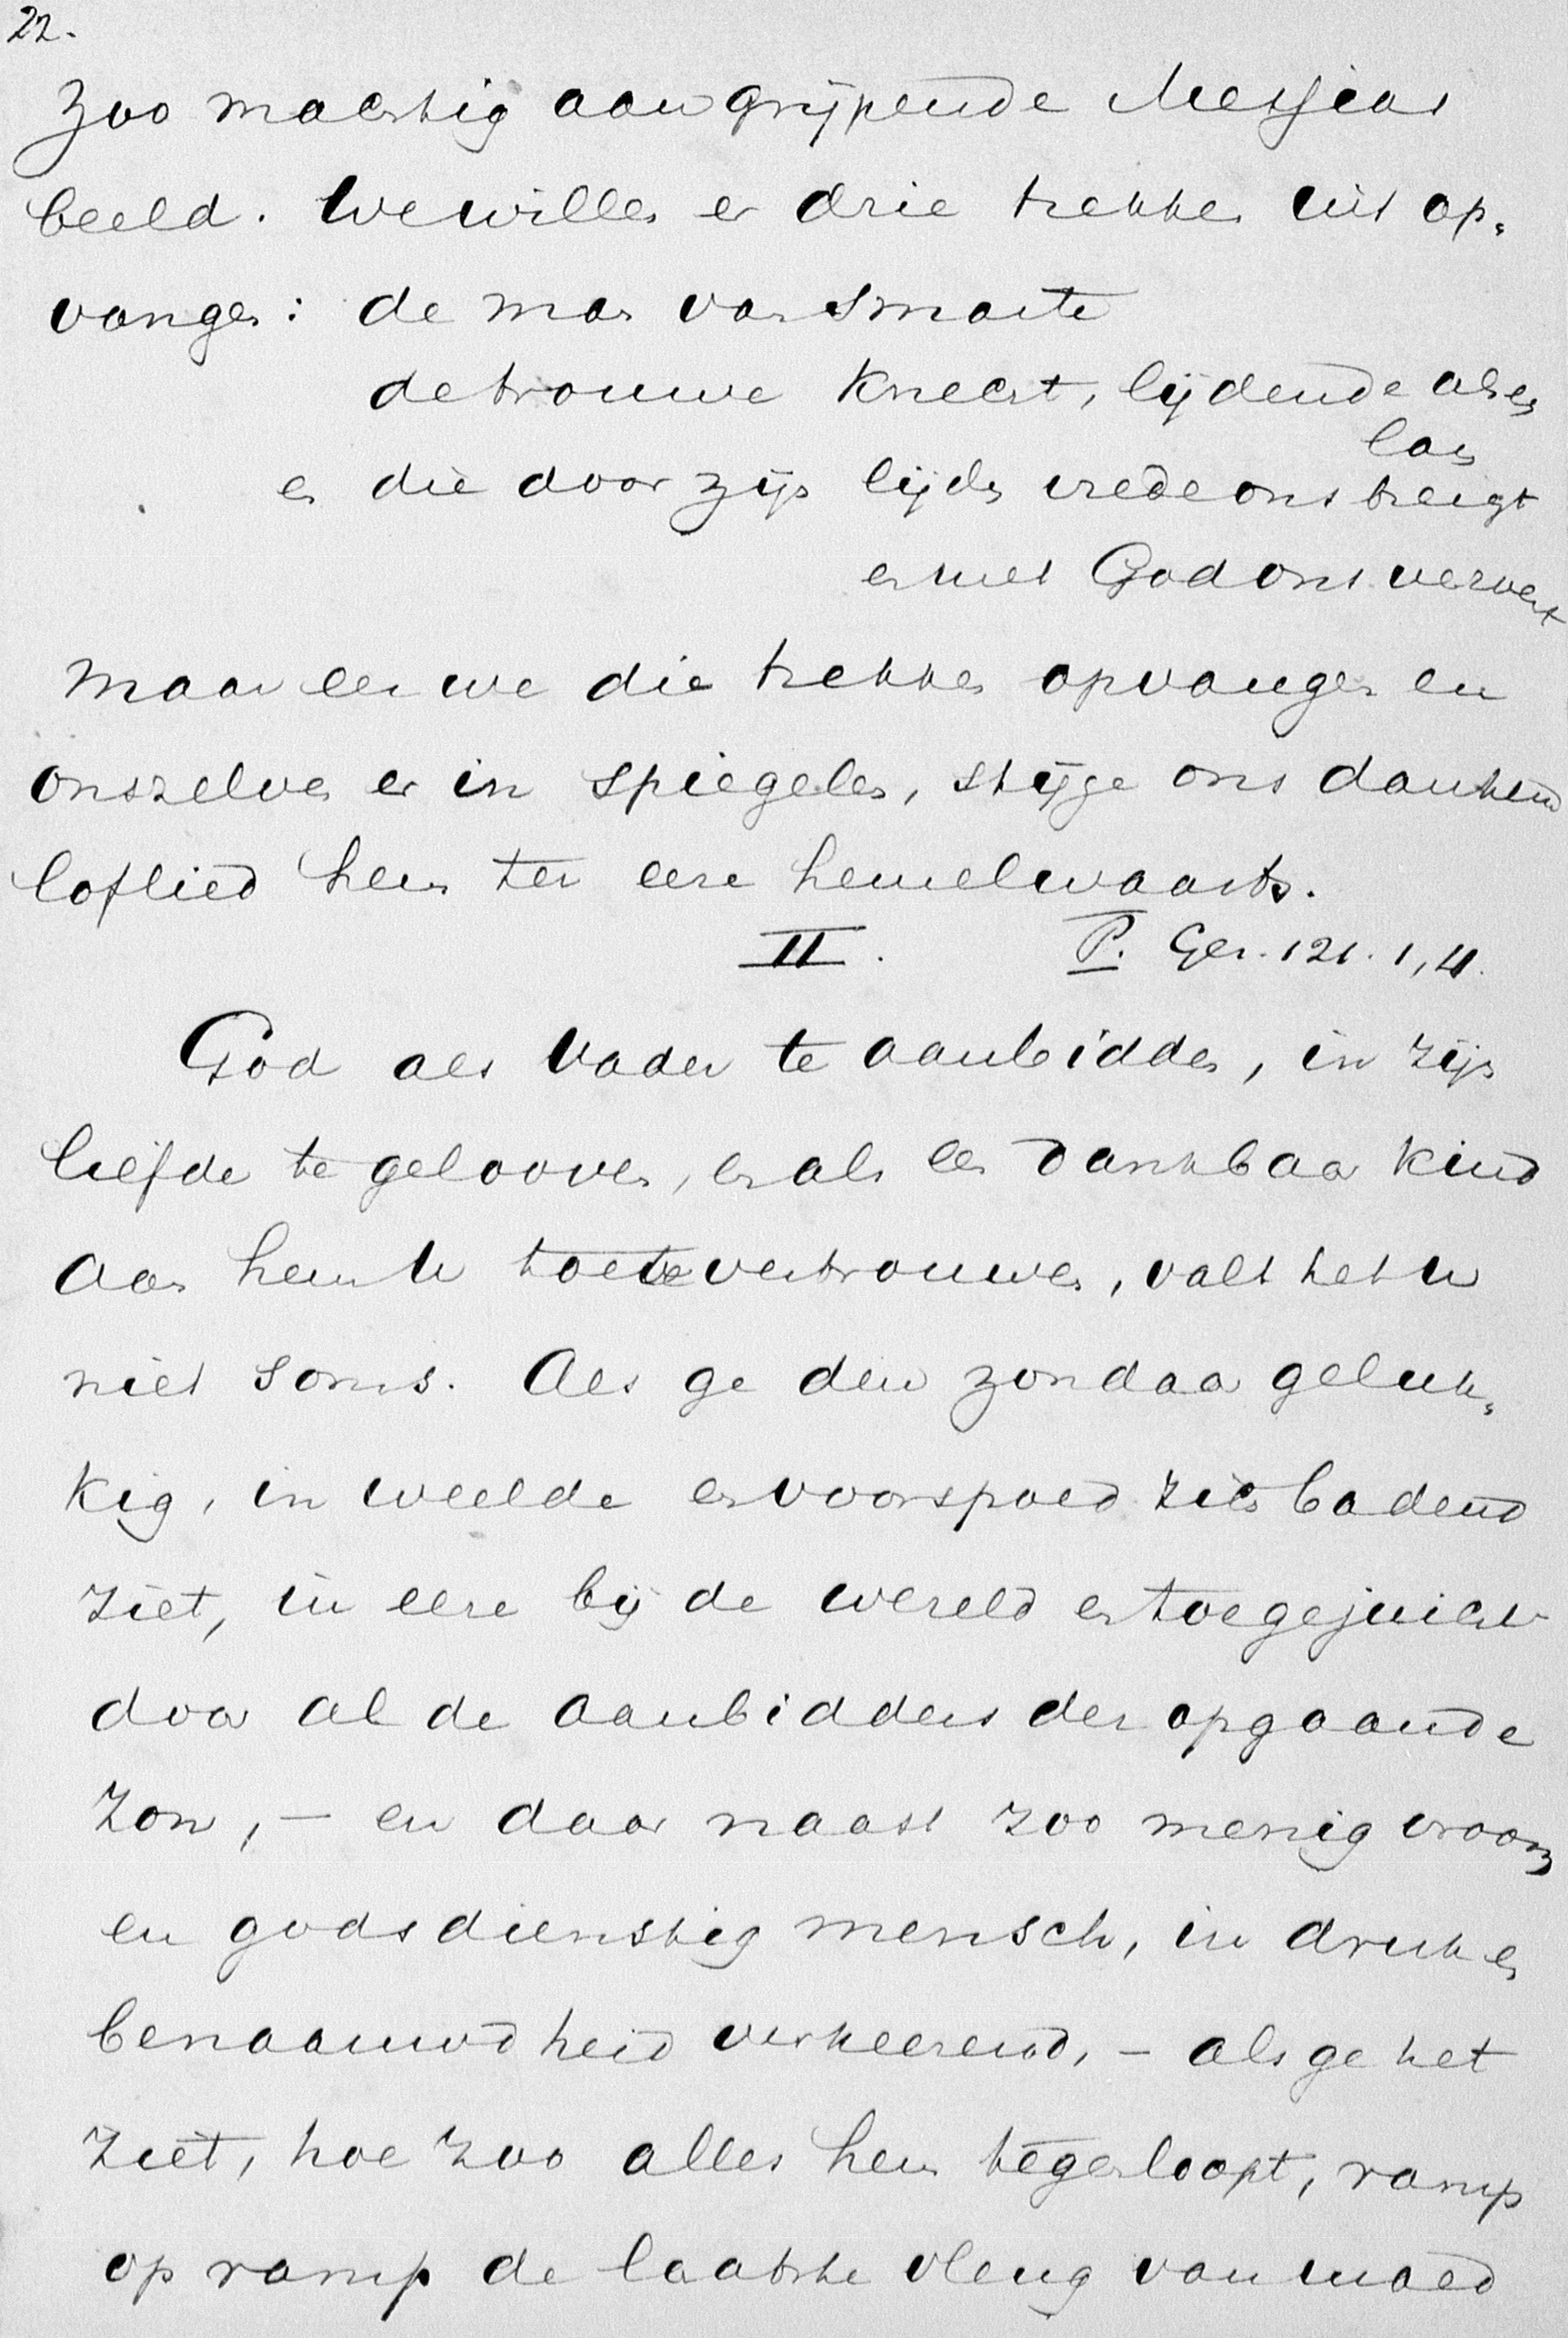 22.
zoo machtig aangrijpende Messias
beeld. We willen er drie trekken uit op-
vangen: de man van smarte
de trouwe Knecht, lijdende als een
lam
en die door zijn lijden vrede ons brengt
en met God ons verzoent
Maar eer we die trekken opvangen en
onszelven er in spiegelen, stijge ons dankend
loflied hem ter eere hemelwaarts.
II. P. Gez. 121. 1, 4.
God als Vader te aanbidden, in zijn
liefde te gelooven, en als een dankbaar kind
aan hem U toe te vertrouwen, valt het U
niet soms. Als ge den zondaar geluk-
kig, in weelde en voorspoed zich badend
ziet, in eere bij de wereld en toegejuicht
door al de aanbidders der opgaande
zon, – en daar naast zoo menig vroom
en godsdienstig mensch, in druk en
benaauwdheid verkeerend, – als ge het
ziet, hoe zoo alles hem tegenloopt, ramp
op ramp de laatste vleug van moed